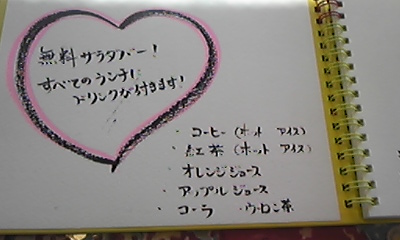 無料サラダバー!
すべてのランチに
ドリンクが付きます!
・コーヒー(ホット アイス)
・紅茶(ホット アイス)
・オレンジジュース
・アップルジュース
・コーラ ・ウーロン茶